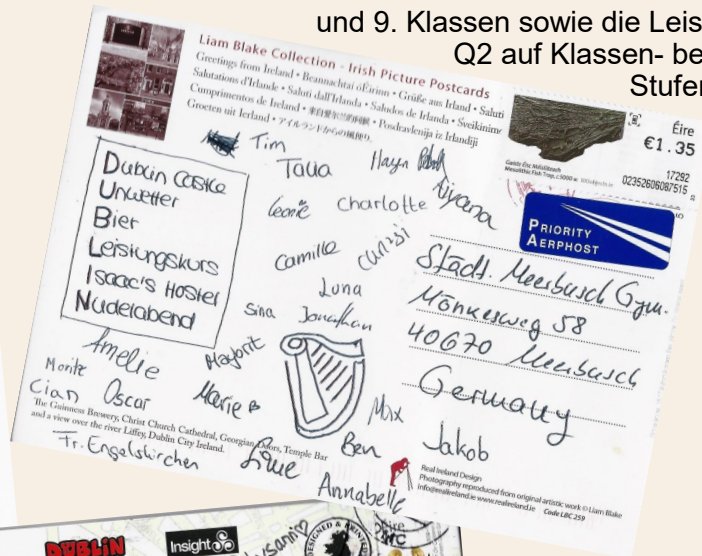 und 9. Klassen sowie die Leis
Q2 auf Klassen- be
Stufer
Liam Blake Collection - Irish Picture Postcards
Greetings from Ireland • Beannachtaí óÉirinn • Grüße aus Irland • Saluti
Salutations d'Irlande • Saluti dall'Irlanda • Saludos de Irlanda • Sveikinime
Cumprimentos de Ireland • Pozdravlenija iz Irlandiji
Groeten uit Ierland • アイルランドからの風便り
Éire
€1.35
17292
02352606087515
PRIORITY
AERPHOST
Dublin Castle
Unwetter
Bier
Leistungskurs
Isaac's Hostel
Nudelabend
Tim
Talia
Leonie
Charlotte
Camilla
Luna
Sina
Jonathan
Amelie
Moritz
Marie
Cian
Oscar
Max
Ben
Annabelle
Jakob
Fr. Engelskirchen
Städt. Meerbusch Gym.
Mönkesweg 58
40670 Meerbusch
Germany
The Guinness Brewery, Christ Church Cathedral, Georgian Doors, Temple Bar
and a view over the river Liffey, Dublin City Ireland.
Real Ireland Design
Photography reproduced from original artistic work © Liam Blake
info@realireland.ie www.realireland.ie Code LBC 259
DUBLIN
Insight
DESIGNED & PRINTED